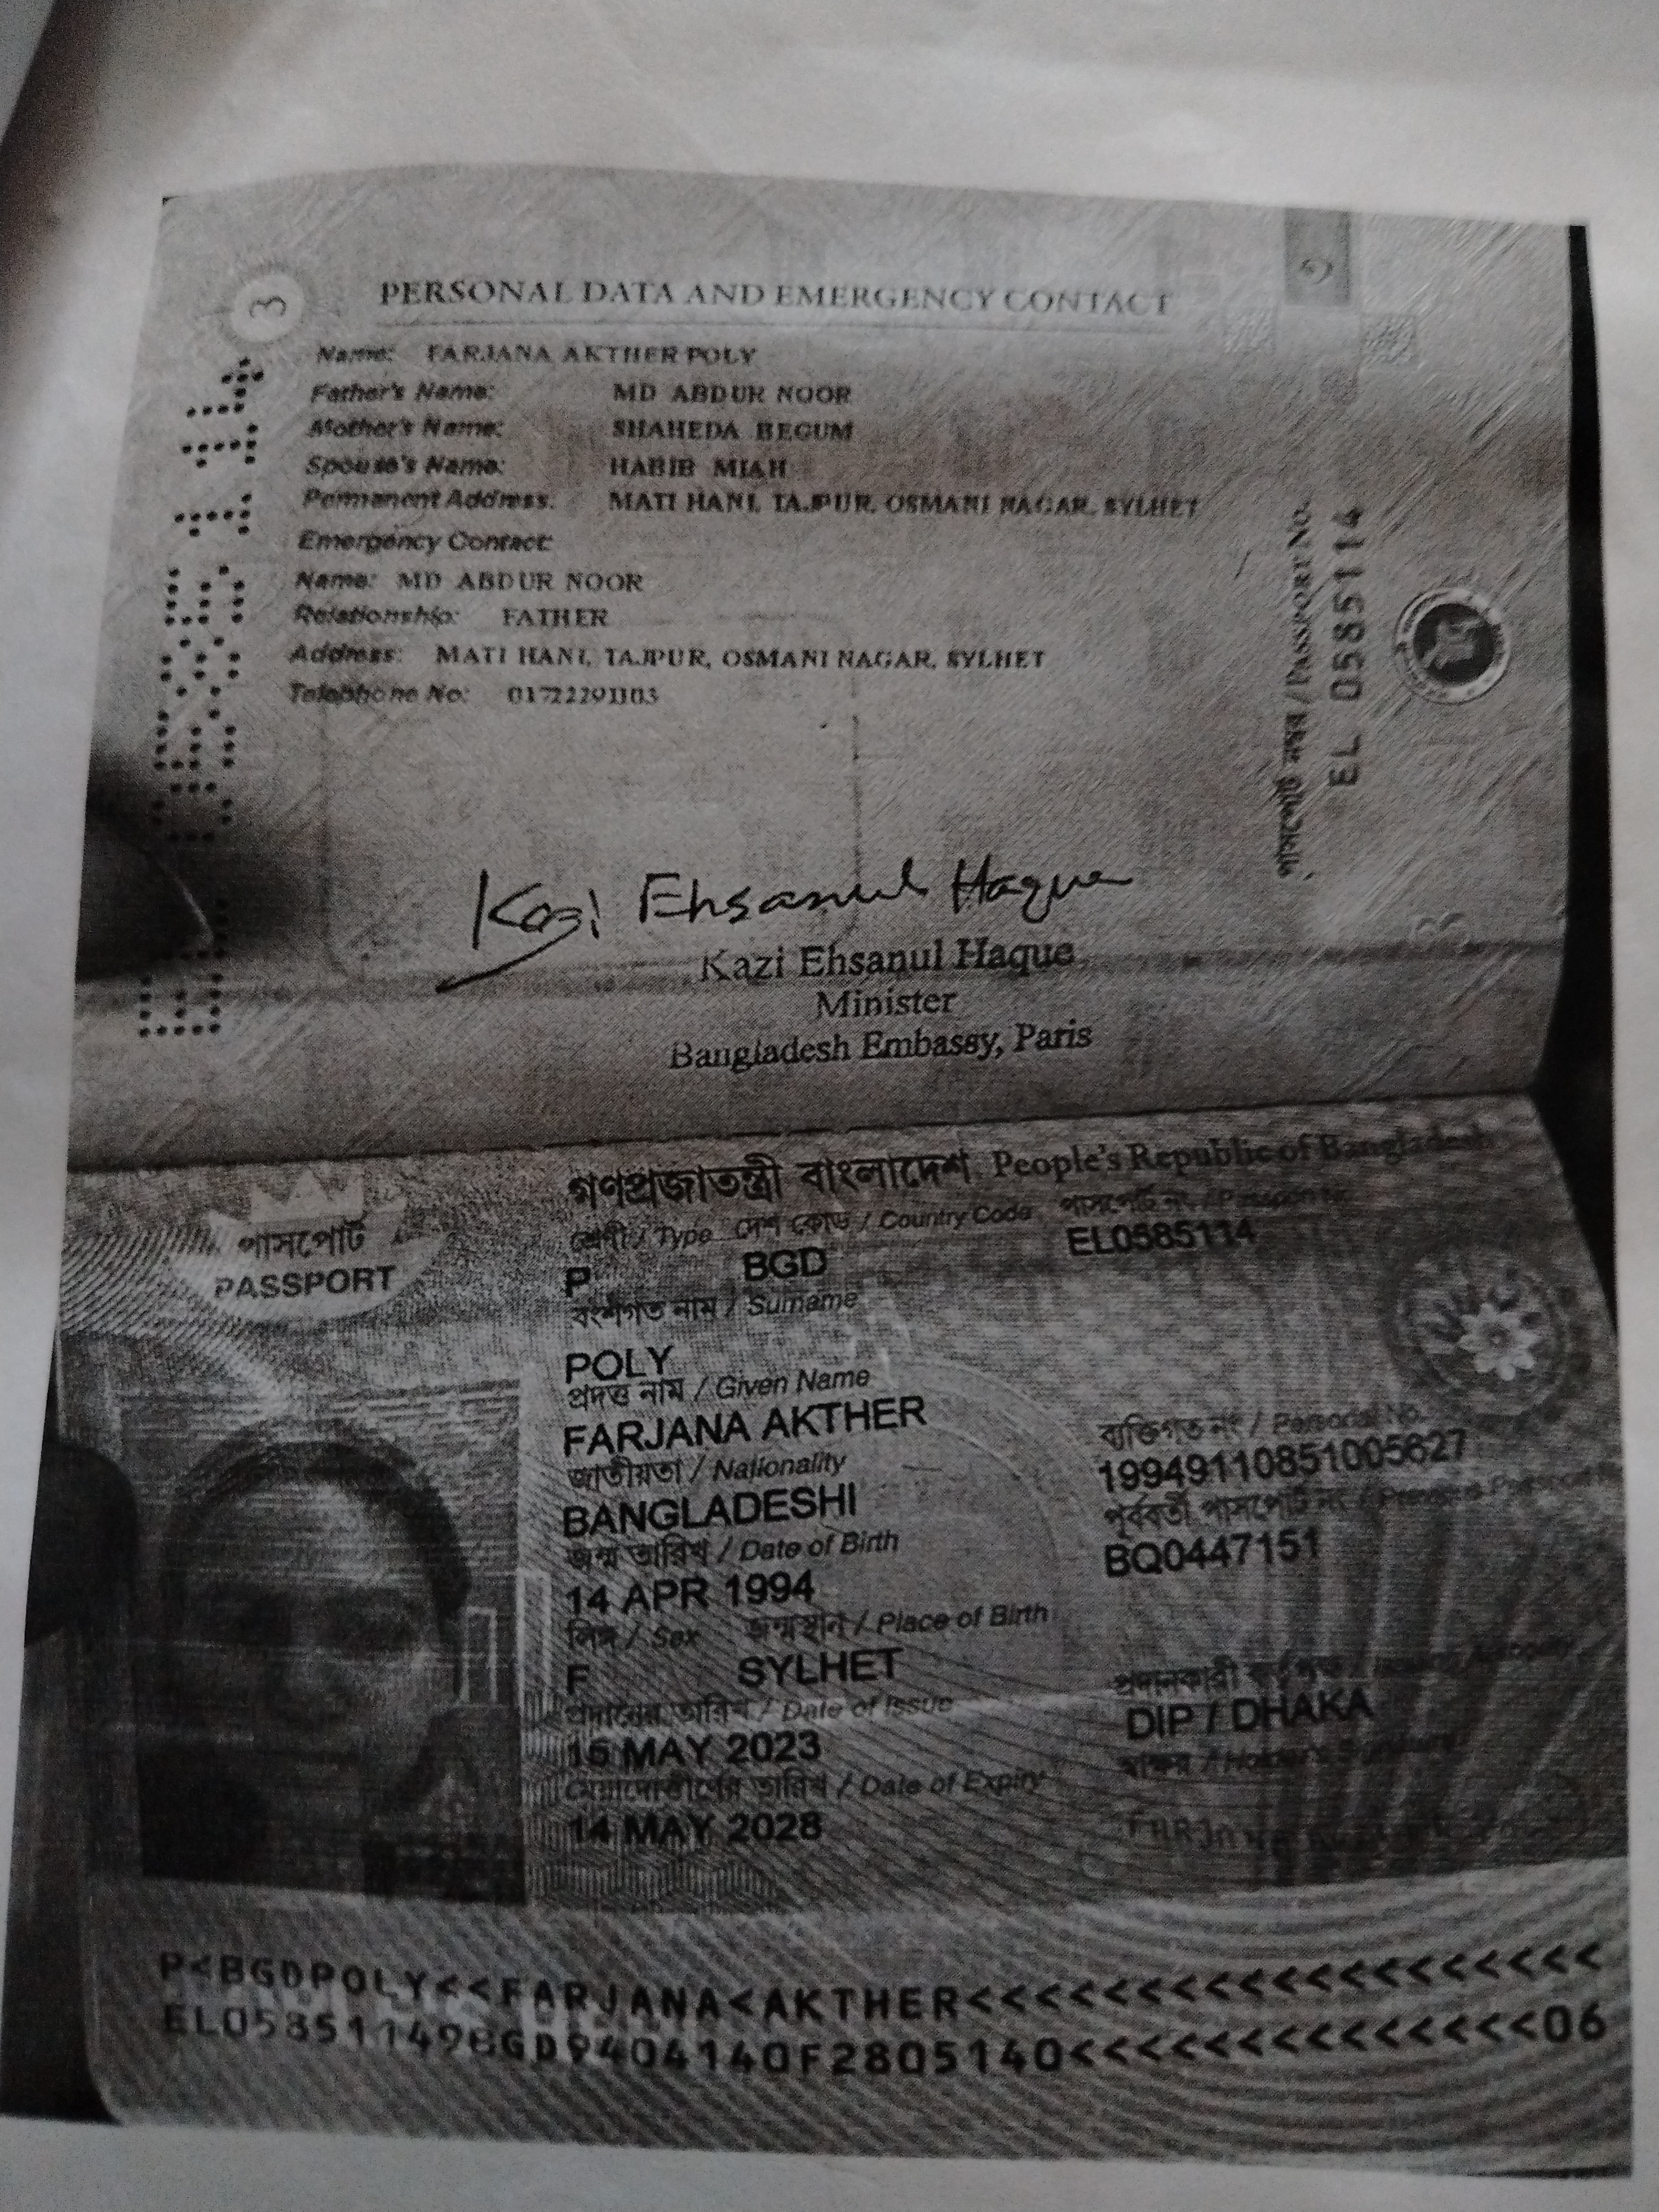 3
PERSONAL DATA AND EMERGENCY CONTACT
Name: FARJANA AKTHER POLY
Father's Name: MD ABDUR NOOR
Mother's Name: SHAHEDA BEGUM
Spouse's Name: HABIB MIAH
Permanent Address: MATI HANI, TAJPUR, OSMANI NAGAR, SYLHET
Emergency Contact:
Name: MD ABDUR NOOR
Relationship: FATHER
Address: MATI HANI, TAJPUR, OSMANI NAGAR, SYLHET
Telephone No: 01722291103
পাসপোর্ট নম্বর / PASSPORT NO.
EL 0585114
Kazi Ehsanul Haque
Kazi Ehsanul Haque
Minister
Bangladesh Embassy, Paris
গণপ্রজাতন্ত্রী বাংলাদেশ People's Republic of Bangladesh
পাসপোর্ট
PASSPORT
শ্রেণী / Type দেশ কোড / Country Code পাসপোর্ট নং / Passport No.
P BGD EL0585114
বংশগত নাম / Surname
POLY
প্রদত্ত নাম / Given Name
FARJANA AKTHER
ব্যক্তিগত নং / Personal No.
19949110851005627
জাতীয়তা / Nationality
BANGLADESHI
পূর্ববর্তী পাসপোর্ট নং / Previous Passport
BQ0447151
জন্ম তারিখ / Date of Birth
14 APR 1994
লিঙ্গ / Sex জন্মস্থান / Place of Birth
F SYLHET
প্রদানকারী কর্তৃপক্ষ / Issuing Authority
DIP / DHAKA
প্রদানের তারিখ / Date of Issue
15 MAY 2023
স্বাক্ষর / Holder's Signature
মেয়াদোত্তীর্ণের তারিখ / Date of Expiry
14 MAY 2028
P<BGDPOLY<<FARJANA<AKTHER<<<<<<<<<<<<<<<<<<<
EL05851149BGD9404140F2805140<<<<<<<<<<<<<<06